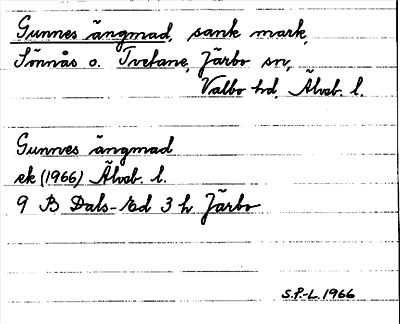 Gunnes ängmad, sank mark,
Sönnås o. Tvetane, Järbo sn,
Valbo hd, Älvsb. l.
Gunnes ängmad
ek (1966) Älvsb. l.
9 B Dals-Ed 3 h Järbo
S.P.-L. 1966